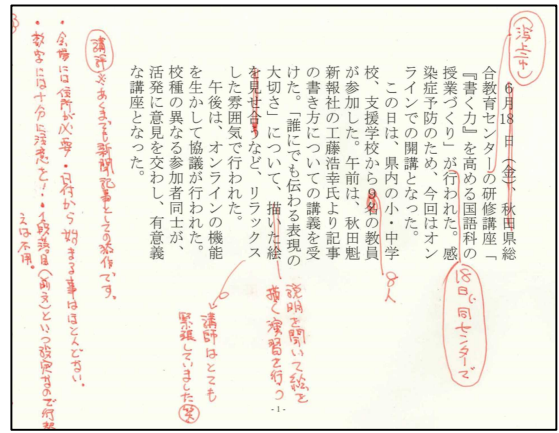 ６月18日（金）、秋田県総
合教育センターの研修講座「
『書く力』を高める国語科の
授業づくり」が行われた。感
染症予防のため、今回はオン
ラインでの開講となった。
この日は、県内の小・中学
校、支援学校から９名の教員
が参加した。午前は、秋田魁
新報社の工藤浩幸氏より記事
の書き方についての講義を受
けた。「誰にでも伝わる表現の
大切さ」について、描いた絵
を見せ合うなど、リラックス
した雰囲気で行われた。
午後は、オンラインの機能
を生かして協議が行われた。
校種の異なる参加者同士が、
活発に意見を交わし、有意義
な講座となった。
18日、同センターで
8人
説明を聞いて絵を
描く演習を行う
講師はとても
緊張していました（笑）
講師
あくまでも新聞記事としての
・会場には住所が必要・日付から始まる事はほとんどない。
・数字には十分に注意を！
- 1 -